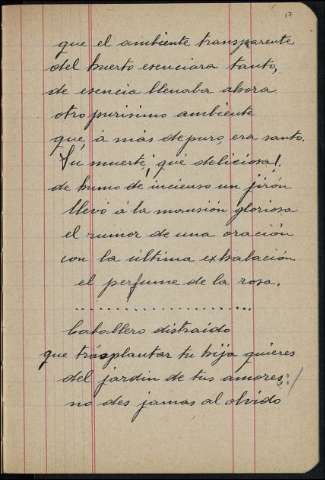 17
que el ambiente transparente
del huerto esenciara tanto,
de esencia llenaba ahora
otro purisimo ambiente
que, á más de puro, era santo.
Tu muerte, ¡qué deliciosa!,
de humo de incienso un jirón
llevó á la mansión gloriosa
el rumor de una oración
con la última exhalación
el perfume de la rosa.
......................
Caballero distraido
que trasplantar tu hija quieres
del jardin de tus amores:
no des jamas al olvido